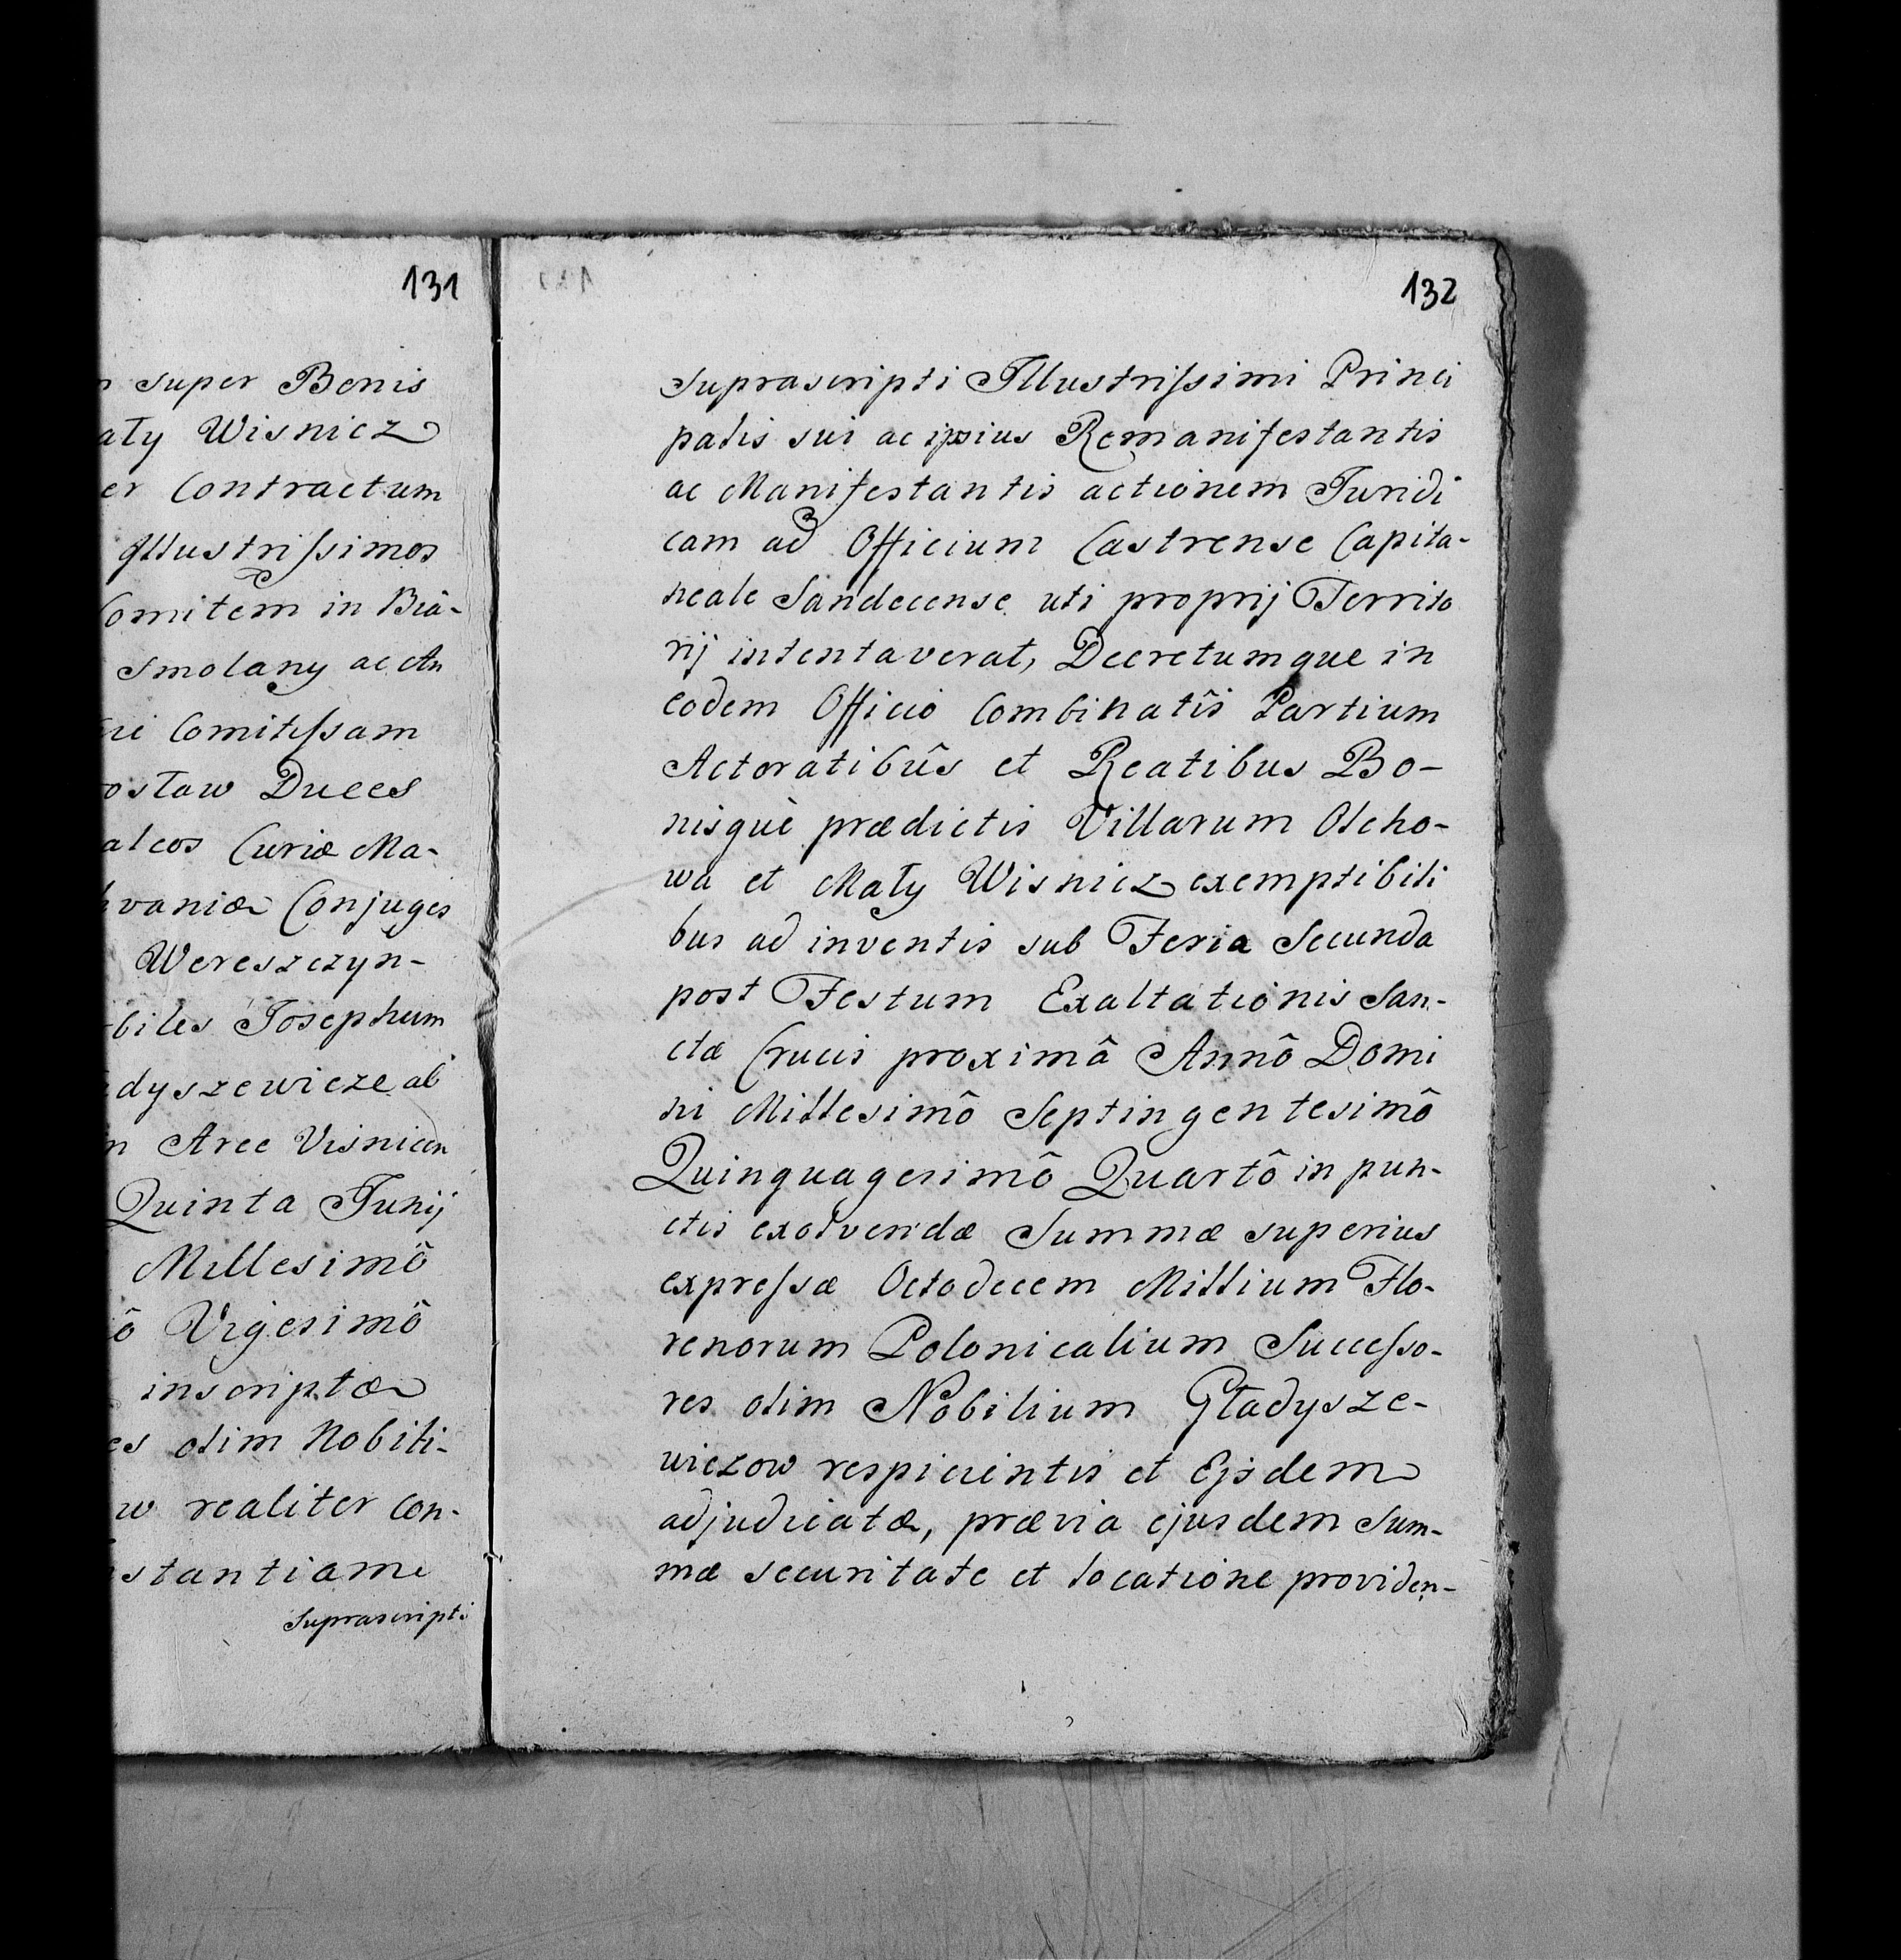 131
super Benis
ały Wisnicz
er Contractum
Illustrissimos
Comitem in Biâ-
Smolany ac An
Comitissam
ostaw Duces
alcos Curiæ Ma-
vaniæ Conjuges
Wereszczyn-
biles Josephum
dyszewicze ab
n Arce Visnicen
Quinta Junij
Millesimô
ô Vigesimô
inscriptæ
es olim Nobili-
w realiter con-
stantiam
Suprascripti
132
Suprascripti Illustrissimi Princi
palis sui ac ipsius Remanifestantis
ac Manifestantis actionem Juridi
cam ad Officium Castrense Capita-
neale Sandecense uti proprij Territo
rij intentaverat, Decretumque in
eodem Officio Combinatîs Partium
Actoratibûs et Reatibus Bo-
nisquè prædictis Villarum Olcho-
wa et Mały Wisnicz exemptibili
bus ad inventis sub Feria Secunda
post Festum Exaltationis San-
ctæ Crucis proximâ Annô Domi
ni Millesimô Septingentesimô
Quinquagesimô Quartô in pun-
ctis exolvendæ Summæ superius
expressæ Octodecem Millium Flo-
renorum Polonicalium Successo-
res olim Nobilium Gładysze-
wiczow respicientis et Ejsdem
adjudicatæ, prævia ejusdem Sum-
mæ securitate et locatione providen-